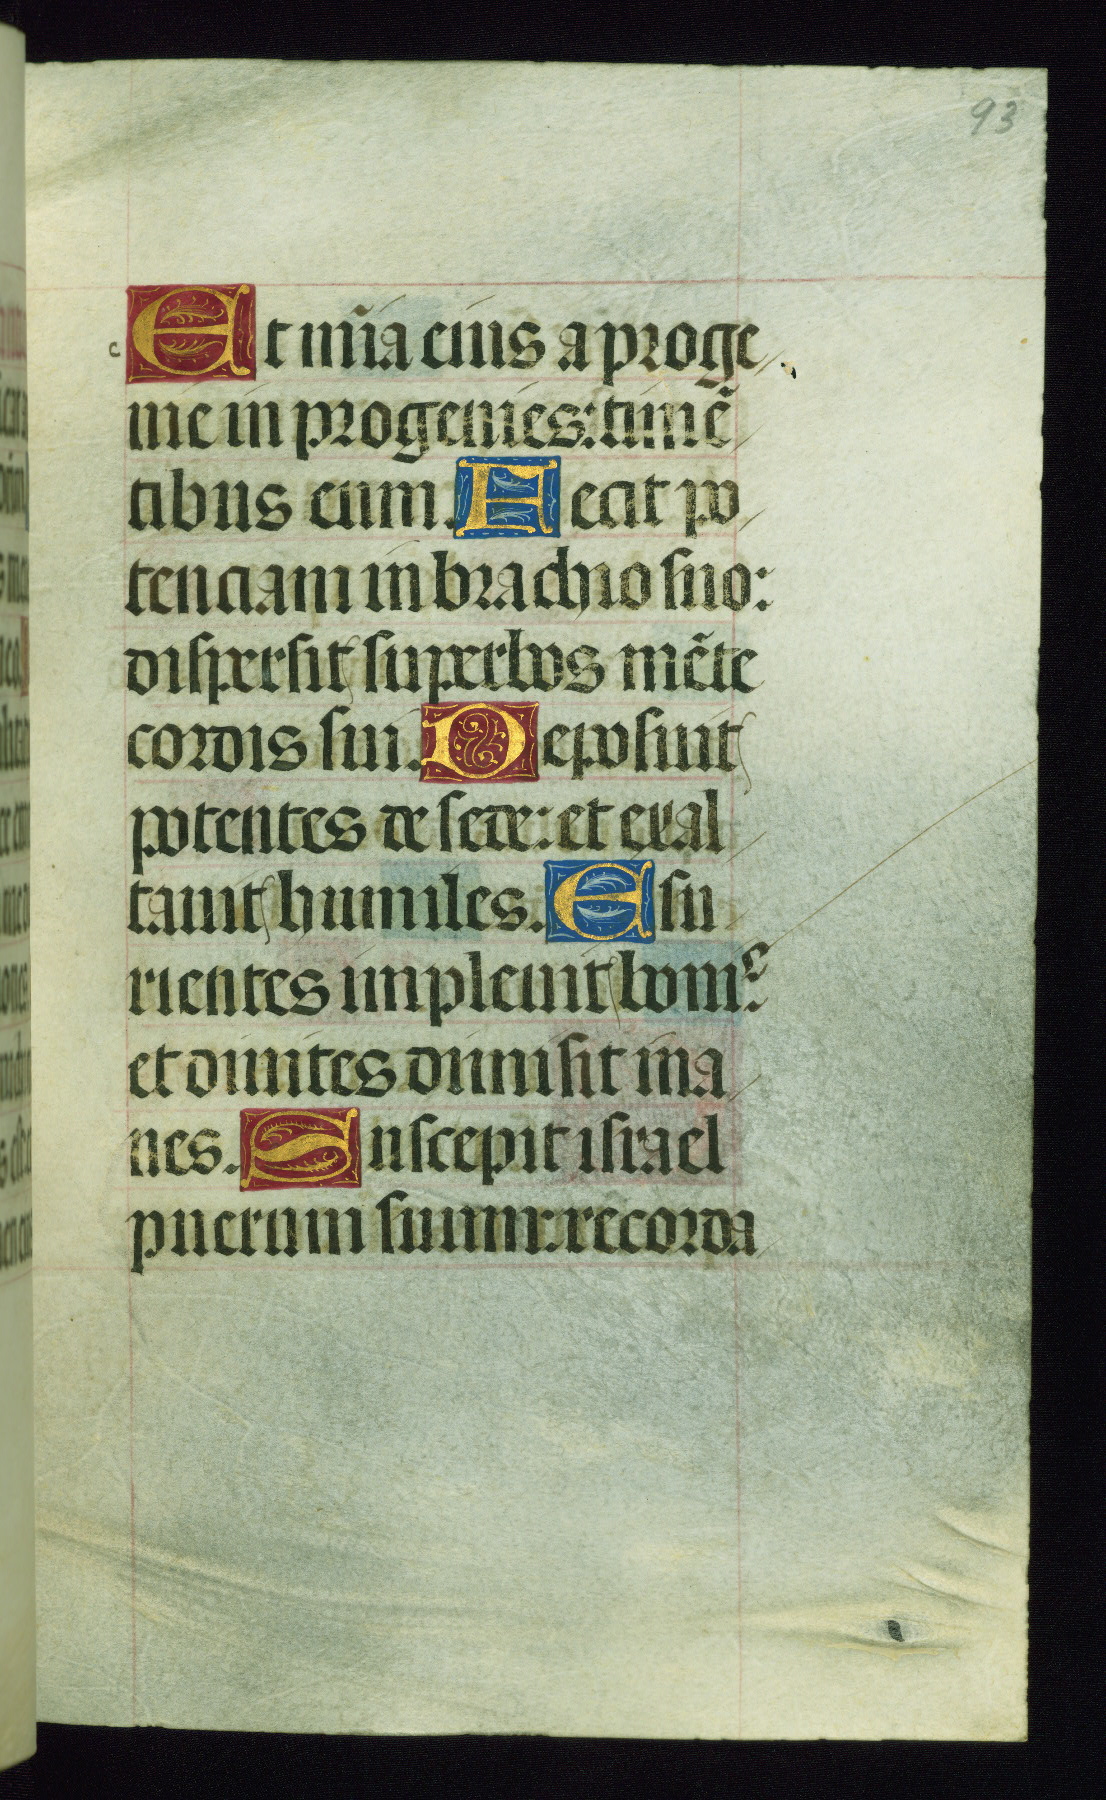 93
c
Et mīa eius a proge
nie in progenies: timē
tibus eum. Fecit po
tenciam in brachio suo:
dispersit superbos mēte
cordis sui. Deposuit
potentes de sede: et exal
tauit humiles. Esu
rientes impleuit bonis:
et diuites dimisit ina
nes. Suscepit israel
puerum suum: recorda